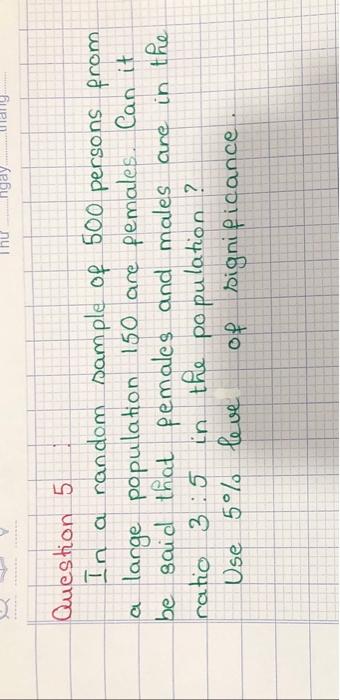 Thứ ngày tháng
Question 5 :
In a random sample of 500 persons from
a large population 150 are females. Can it
be said that females and males are in the
ratio 3:5 in the population?
Use 5% leve of significance.